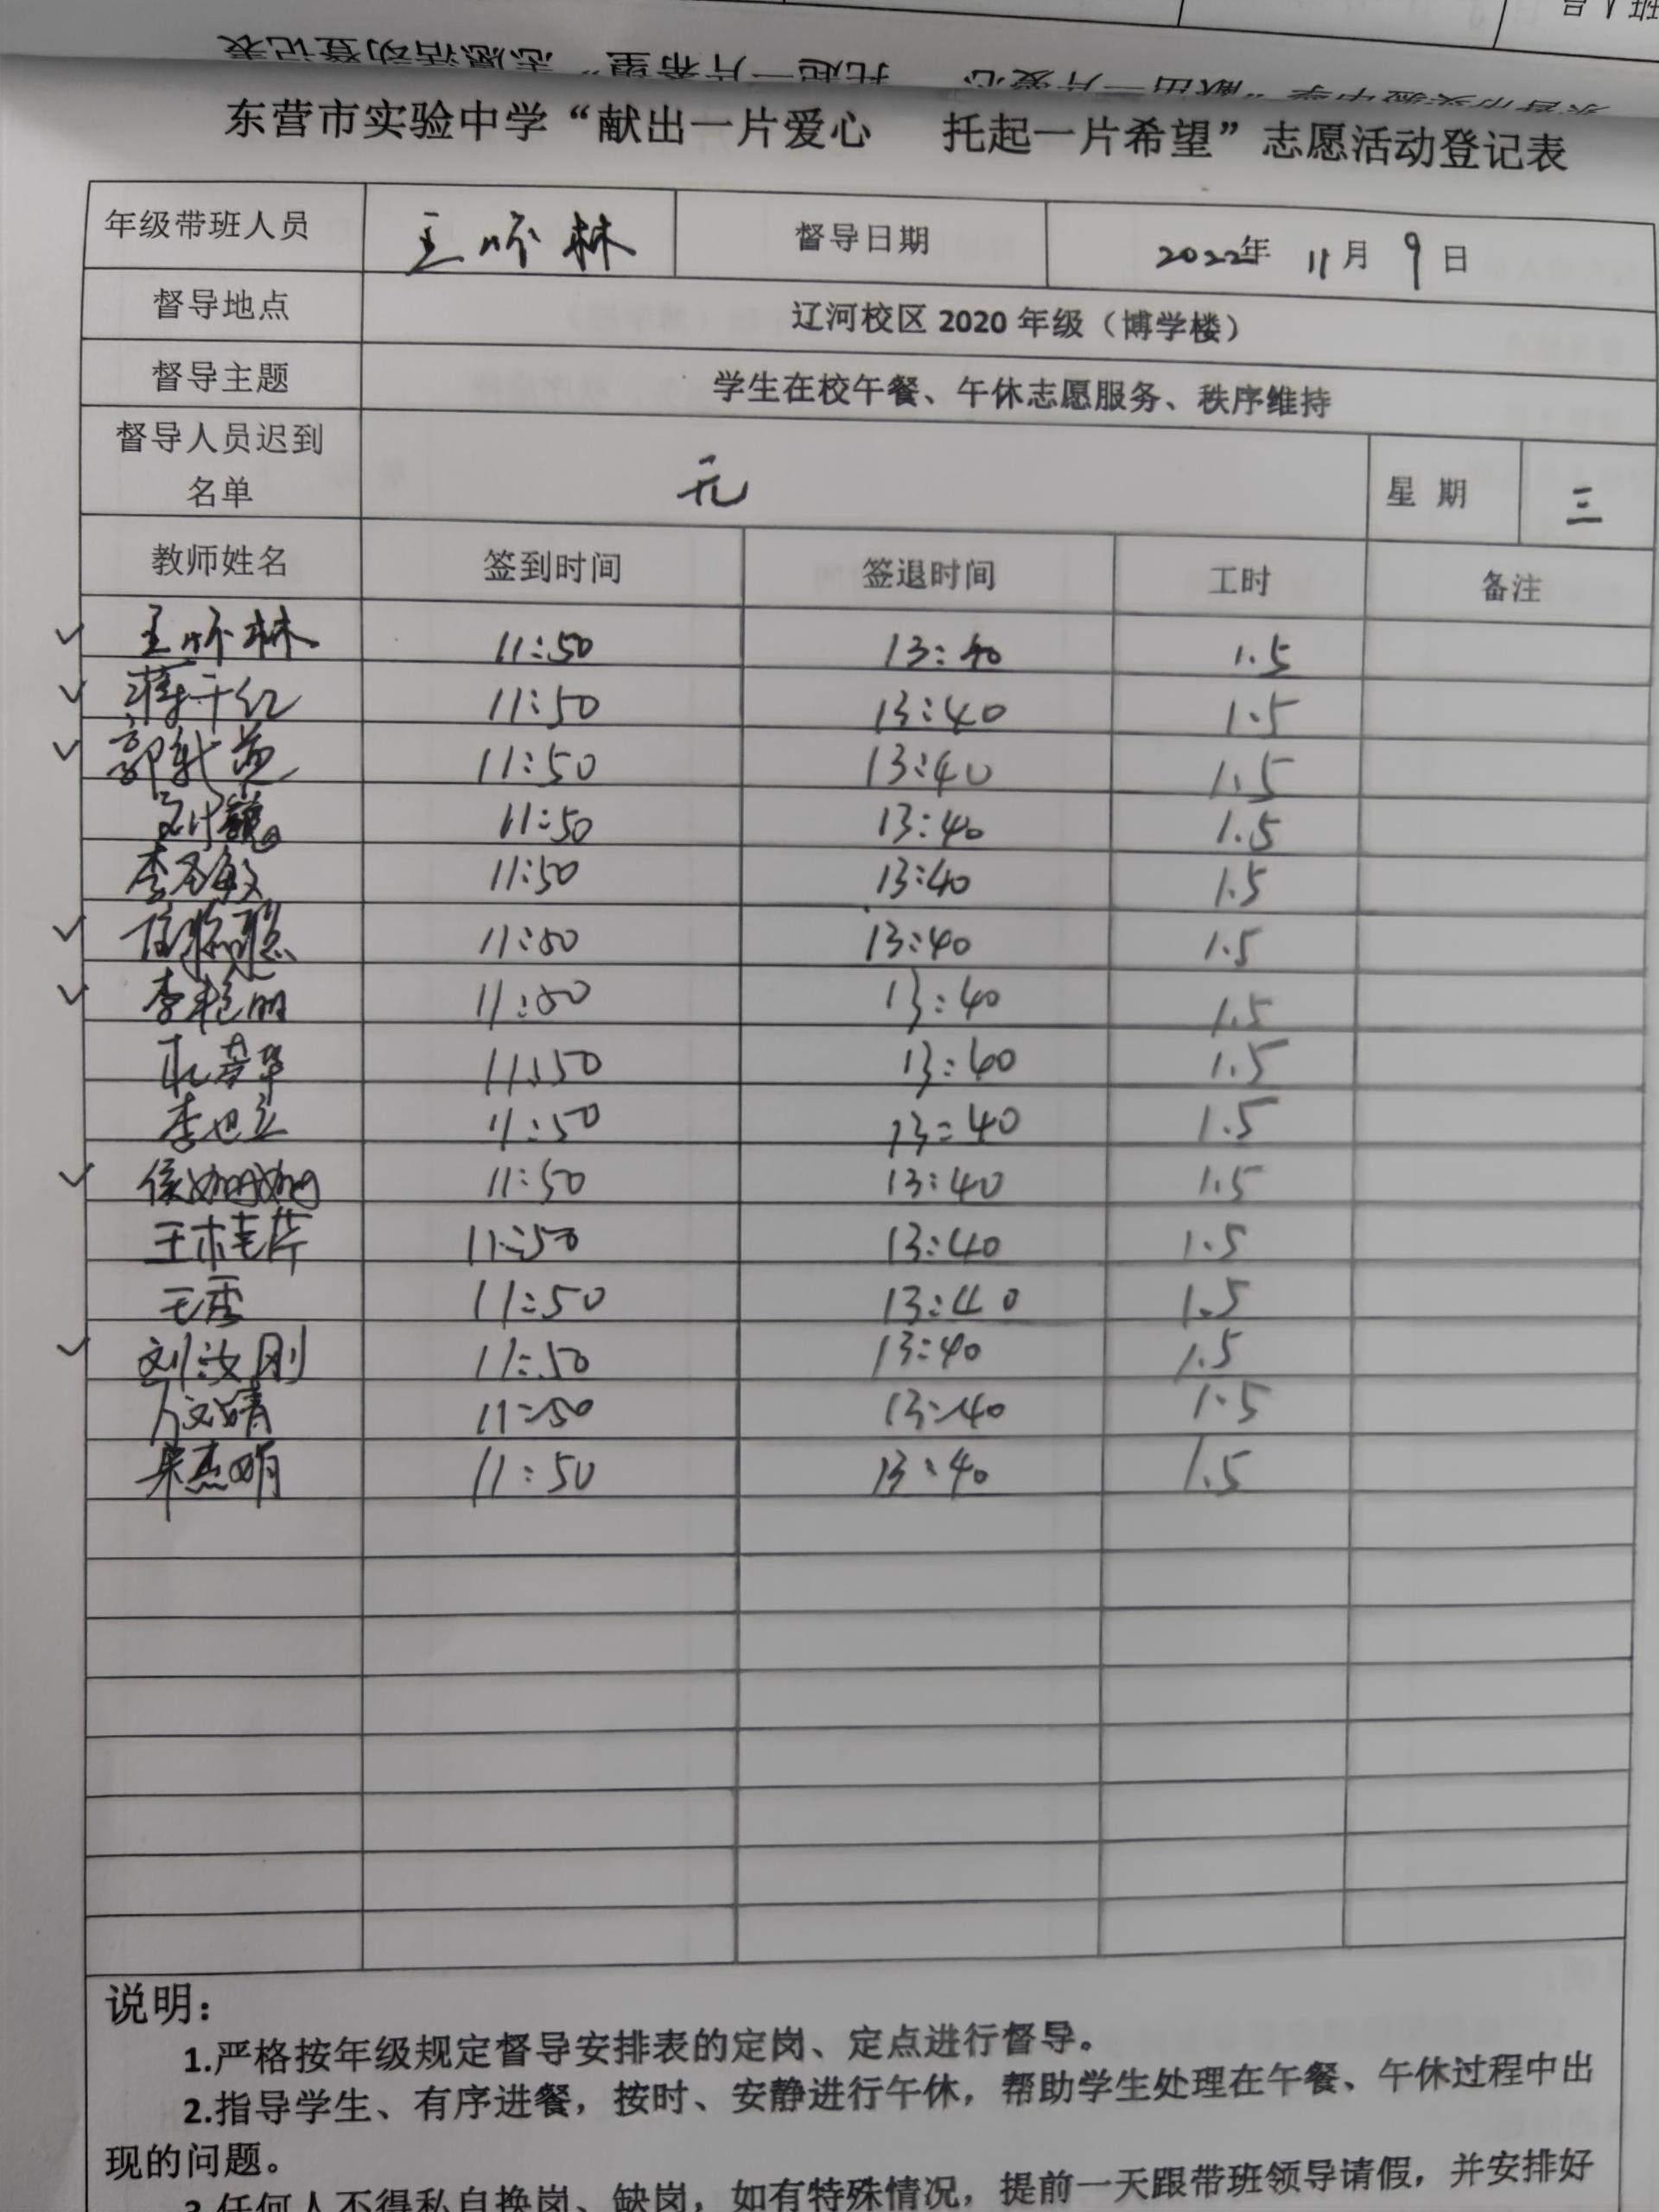 东营市实验中学“献出一片爱心 托起一片希望”志愿活动登记表
年级带班人员 王 林 督导日期 2022年 11月 9日
督导地点 辽河校区 2020 年级（博学楼）
督导主题 学生在校午餐、午休志愿服务、秩序维持
督导人员迟到
名单 无 星 期 三
教师姓名 签到时间 签退时间 工时 备注
王 林 11:50 13:40 1.5
蒋千红 11:50 13:40 1.5
郭新苑 11:50 13:40 1.5
11:50 13:40 1.5
李 敏 11:50 13:40 1.5
聪 11:50 13:40 1.5
李艳丽 11:50 13:40 1.5
耿芳华 11:50 13:40 1.5
李世立 11:50 13:40 1.5
侯姗姗 11:50 13:40 1.5
王桂华 11:50 13:40 1.5
王雪 11:50 13:40 1.5
刘汝刚 11:50 13:40 1.5
文婧 11:50 13:40 1.5
杰明 11:50 13:40 1.5
说明：
1.严格按年级规定督导安排表的定岗、定点进行督导。
2.指导学生、有序进餐，按时、安静进行午休，帮助学生处理在午餐、午休过程中出
现的问题。
3.任何人不得私自换岗、缺岗，如有特殊情况，提前一天跟带班领导请假，并安排好